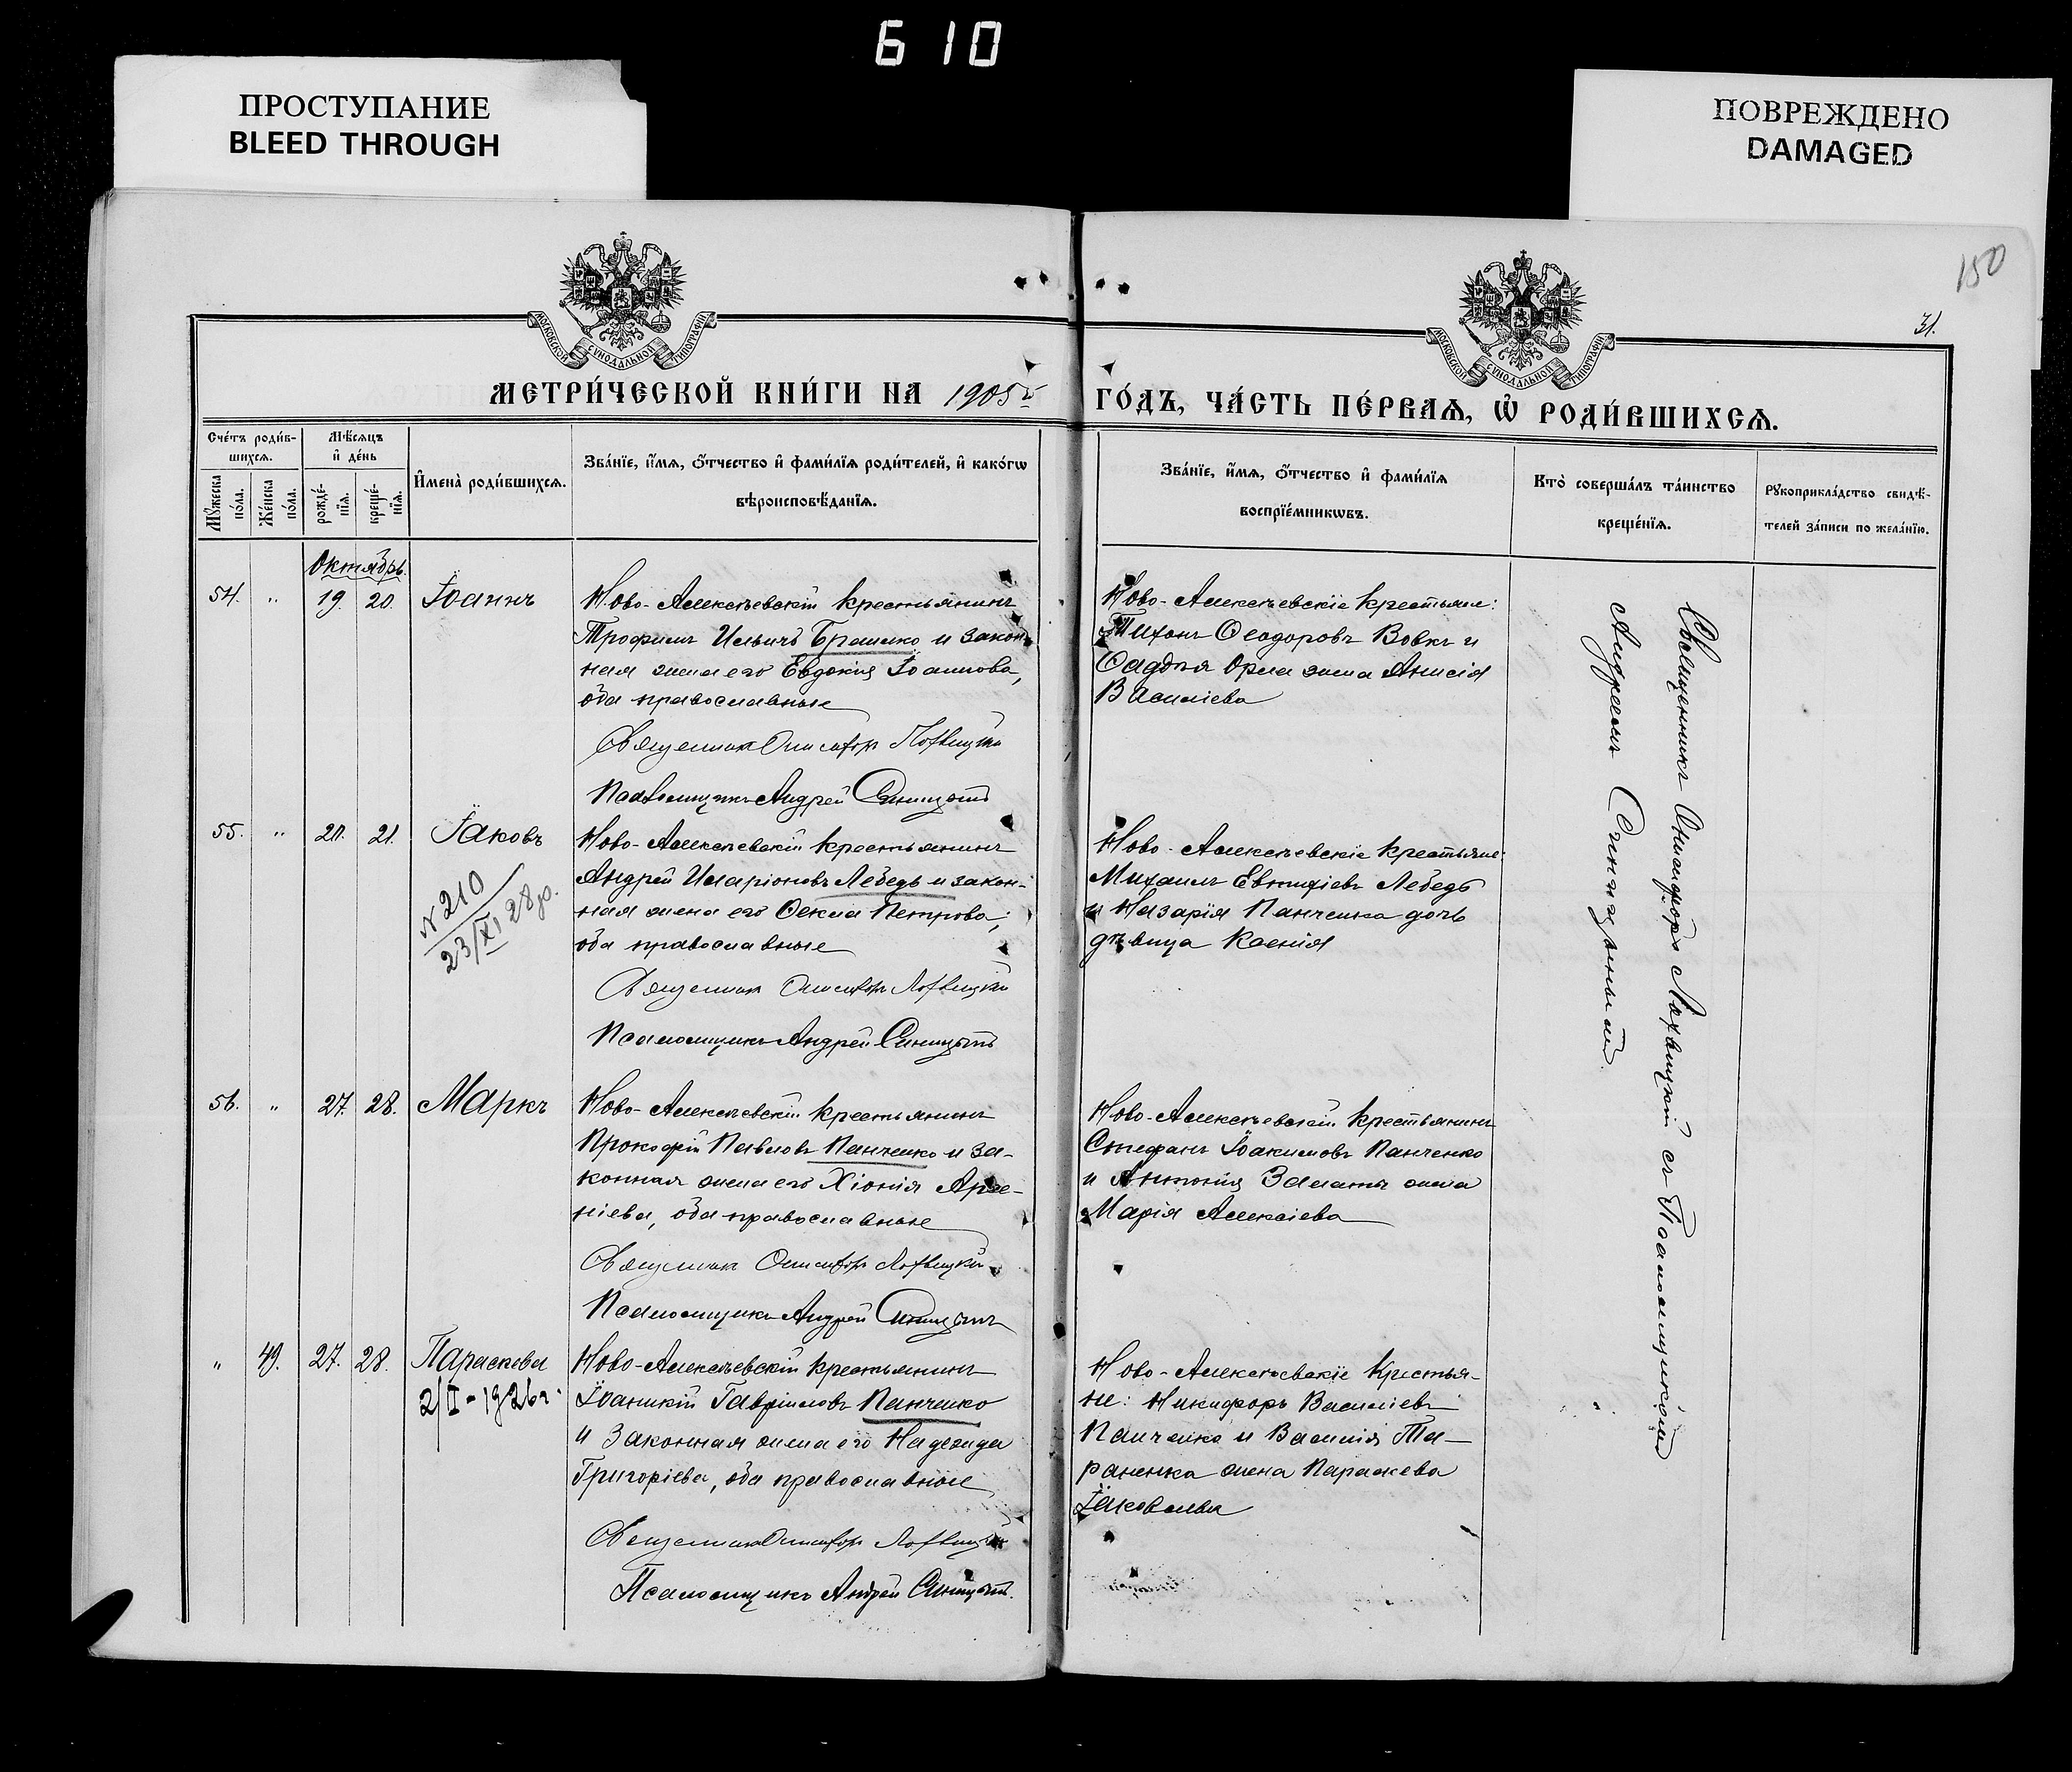 610
ПРОСТУПАНИЕ
BLEED THROUGH
ПОВРЕЖДЕНО
DAMAGED
150
31.
МОСКОВСКОЙ СѴНОДАЛЬНОЙ ТИПОГРАФІИ
МОСКОВСКОЙ СѴНОДАЛЬНОЙ ТИПОГРАФІИ
МЕТРИ́ЧЕСКОЙ КНИ́ГИ НА 1905й
ГО́ДЪ, ЧА́СТЬ ПЕ́РВАѦ, Ѽ РОДИ́ВШИХСѦ.
Сче́тъ роди́в-
шихсѧ.
Мѣ́сѧцъ
и҆ де́нь
Мꙋ́жеска
по́ла.
Же́нска
по́ла.
рожде́-
нїѧ.
креще́-
нїѧ.
И҆мена̀ роди́вшихсѧ.
Зва́нїе, и҆́мѧ, ѻ҆́тчество и҆ фами́лїѧ роди́телей, и҆ како́гѡ
вѣроисповѣ́данїѧ.
Зва́нїе, и҆́мѧ, ѻ҆́тчество и҆ фами́лїѧ
воспрїе́мникѡвъ.
Кто̀ соверша́лъ та́инство
креще́нїѧ.
Рꙋкоприкла́дство свидѣ́-
телей за́писи по жела́нїю.
Октябрь.
54. " 19. 20. Іоаннъ
Ново-Алексѣевскій крестьянинъ
Трофимъ Ильичъ Брашко и закон-
ная жена его Евдокія Іоаннова,
оба православные
Священникъ Онисифоръ Лохвицкій
Псаломщикъ Андрей Синицын
Ново-Алексѣевскіе крестьяне:
Тихонъ Ѳеодоровъ Вовкъ и
Фаддѣя Орла жена Анисія
Василіева
55. " 20. 21. Іаковъ
N 210
23/XI 28
Ново-Алексѣевскій крестьянинъ
Андрей Иларіоновъ Лебедь и закон-
ная жена его Ѳекла Петрова,
оба православные
Священникъ Онисифоръ Лохвицкій
Псаломщикъ Андрей Синицын
Ново-Алексѣевскіе крестьяне:
Михаилъ Евтихіевъ Лебедь
и Назарія Панченка дочь
дѣвица Ксенія
56. " 27. 28. Маркъ
Ново-Алексѣевскій крестьянинъ
Прокофій Павловъ Панченко и за-
конная жена его Хіонія Арсе-
ніева, оба православные
Священникъ Онисифоръ Лохвицкій
Псаломщикъ Андрей Синицын
Ново-Алексѣевскій крестьянинъ
Стефанъ Іоакимовъ Панченко
и Антонія жена
Марія Алексіева
" 49. 27. 28. Параскева
2/II-1926 г.
Ново-Алексѣевскій крестьянинъ
Іоанникій Гавріиловъ Панченко
и законная жена его Надежда
Григоріева, оба православные
Священникъ Онисифоръ Лохвицкій
Псаломщикъ Андрей Синицын.
Ново-Алексѣевскіе крестья-
не: Никифоръ Василіевъ
Панченко и Василія Та-
раненка жена Параскева
Іаковлева
Священникъ Онисифоръ Лохвицкій съ Псаломщикомъ
Андреемъ